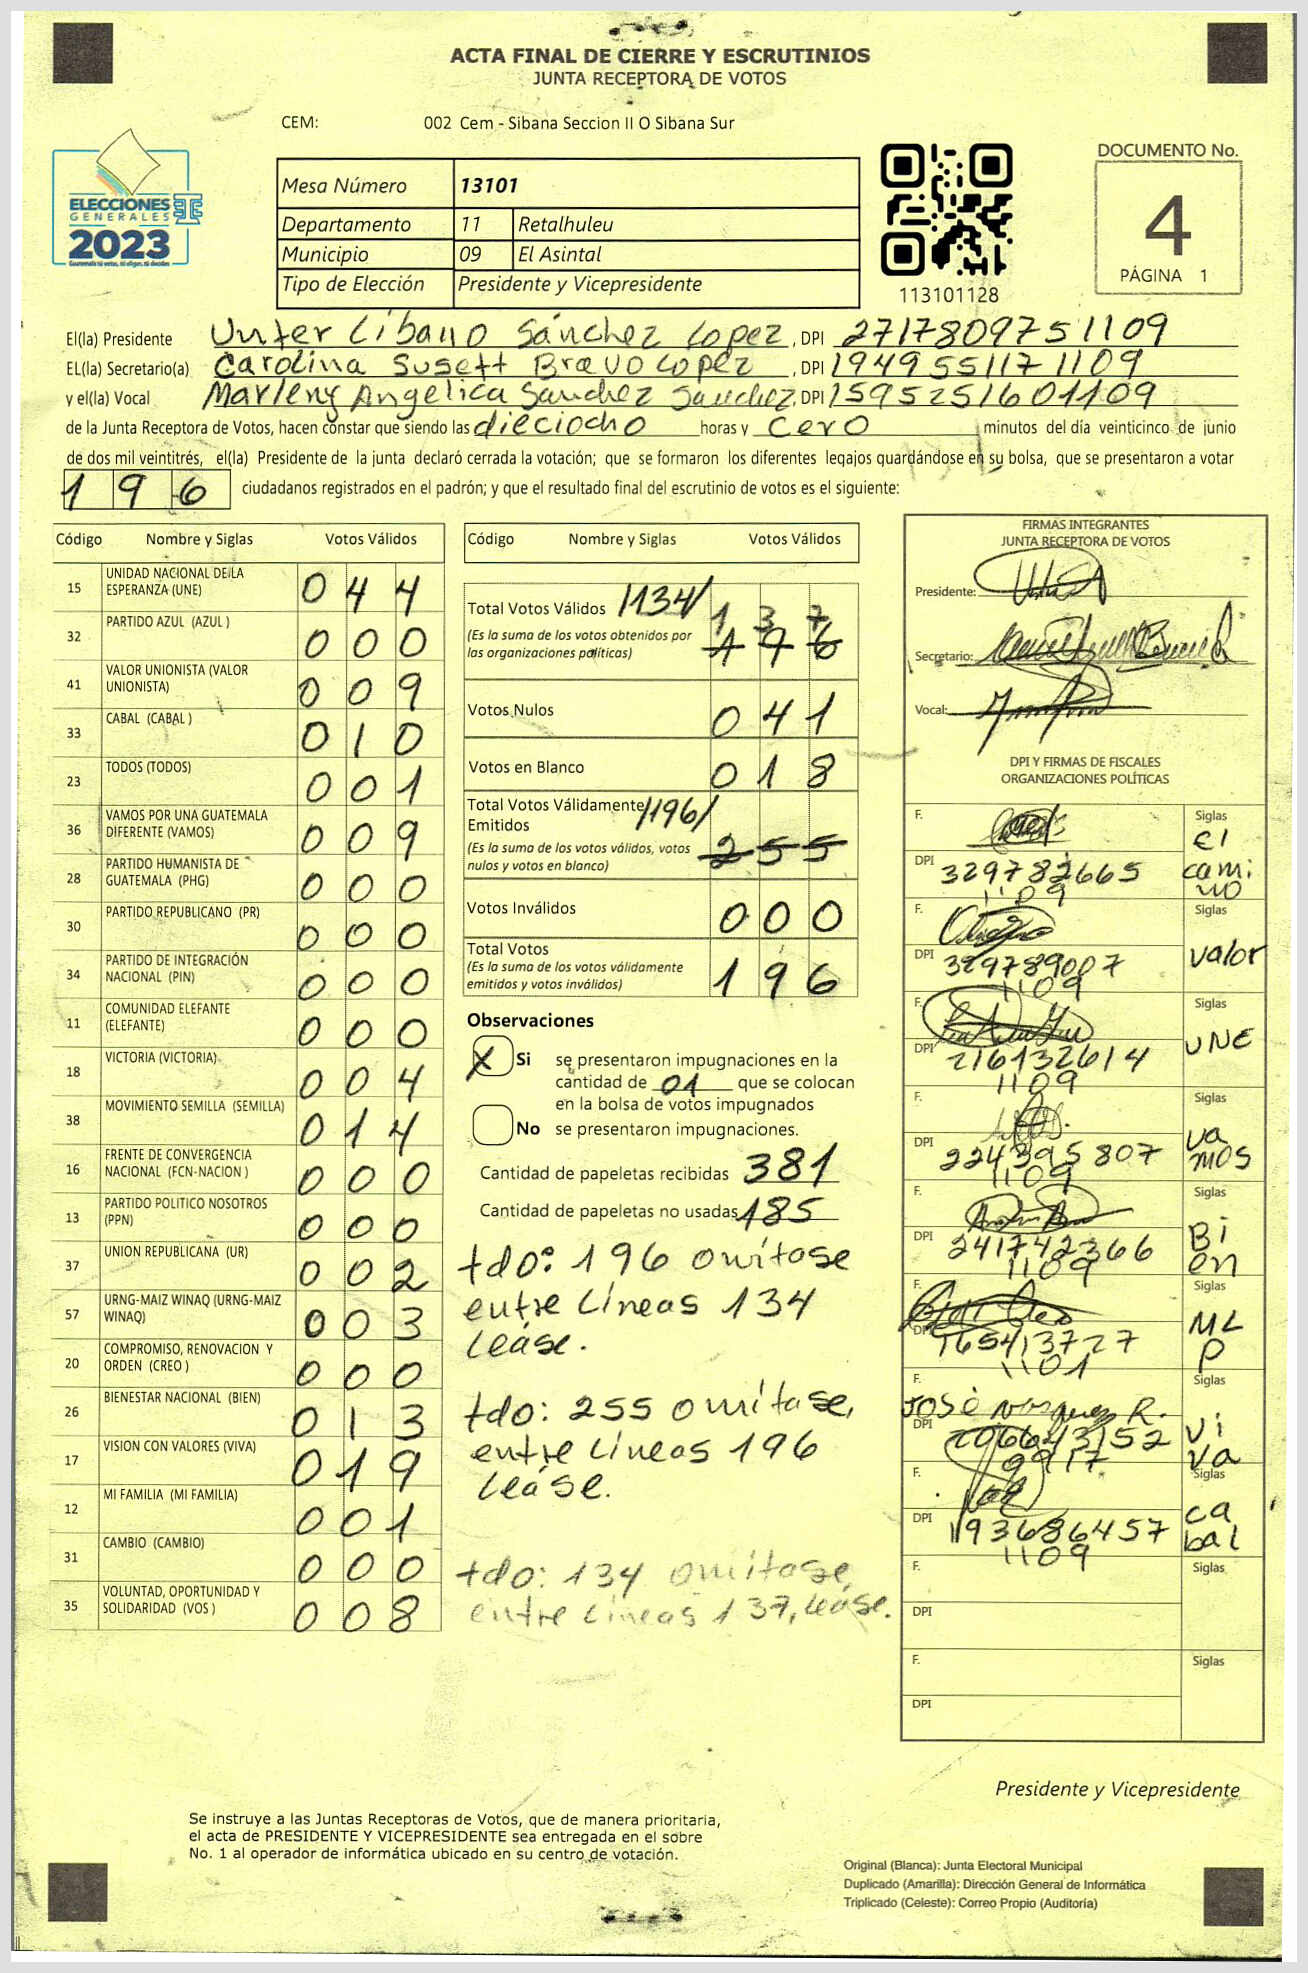 ACTA FINAL DE CIERRE Y ESCRUTINIOS
JUNTA RECEPTORA DE VOTOS
CEM: 002 Cem - Sibana Seccion II O Sibana Sur
ELECCIONES
GENERALES
2023
Mesa Número 13101
Departamento 11 Retalhuleu
Municipio 09 El Asintal
Tipo de Elección Presidente y Vicepresidente
113101128
DOCUMENTO No.
4
PÁGINA 1
El(la) Presidente Unter Líbano Sánchez Lopez, DPI 2717809751109
EL(la) Secretario(a) Carolina Susett Bravo Lopez, DPI 1949551171109
y el(la) Vocal Marleny Angelica Sanchez Sanchez, DPI 1595251601109
de la Junta Receptora de Votos, hacen constar que siendo las dieciocho horas y cero minutos del día veinticinco de junio
de dos mil veintitrés, el(la) Presidente de la junta declaró cerrada la votación; que se formaron los diferentes legajos guardándose en su bolsa, que se presentaron a votar
196 ciudadanos registrados en el padrón; y que el resultado final del escrutinio de votos es el siguiente:
Código Nombre y Siglas Votos Válidos
15 UNIDAD NACIONAL DE LA
ESPERANZA (UNE) 044
32 PARTIDO AZUL (AZUL ) 000
41 VALOR UNIONISTA (VALOR
UNIONISTA) 009
33 CABAL (CABAL ) 010
23 TODOS (TODOS) 001
36 VAMOS POR UNA GUATEMALA
DIFERENTE (VAMOS) 009
28 PARTIDO HUMANISTA DE
GUATEMALA (PHG) 000
30 PARTIDO REPUBLICANO (PR) 000
34 PARTIDO DE INTEGRACIÓN
NACIONAL (PIN) 000
11 COMUNIDAD ELEFANTE
(ELEFANTE) 000
18 VICTORIA (VICTORIA) 004
38 MOVIMIENTO SEMILLA (SEMILLA) 014
16 FRENTE DE CONVERGENCIA
NACIONAL (FCN-NACION ) 000
13 PARTIDO POLITICO NOSOTROS
(PPN) 000
37 UNION REPUBLICANA (UR) 002
57 URNG-MAIZ WINAQ (URNG-MAIZ
WINAQ) 003
20 COMPROMISO, RENOVACION Y
ORDEN (CREO ) 000
26 BIENESTAR NACIONAL (BIEN) 013
17 VISION CON VALORES (VIVA) 019
12 MI FAMILIA (MI FAMILIA) 001
31 CAMBIO (CAMBIO) 000
35 VOLUNTAD, OPORTUNIDAD Y
SOLIDARIDAD (VOS ) 008
Código Nombre y Siglas Votos Válidos
Total Votos Válidos /134/ 137
(Es la suma de los votos obtenidos por
las organizaciones políticas) 196
Votos Nulos 041
Votos en Blanco 018
Total Votos Válidamente /196/
Emitidos
(Es la suma de los votos válidos, votos
nulos y votos en blanco) 255
Votos Inválidos 000
Total Votos
(Es la suma de los votos válidamente
emitidos y votos inválidos) 196
Observaciones
X Si se presentaron impugnaciones en la
cantidad de 01 que se colocan
en la bolsa de votos impugnados
No se presentaron impugnaciones.
Cantidad de papeletas recibidas 381
Cantidad de papeletas no usadas 185
tdo: 196 omítase
entre líneas 134
léase.
tdo: 255 omítase,
entre líneas 196
léase.
tdo: 134 omítase,
entre líneas 137, léase.
FIRMAS INTEGRANTES
JUNTA RECEPTORA DE VOTOS
Presidente:
Secretario:
Vocal:
DPI Y FIRMAS DE FISCALES
ORGANIZACIONES POLÍTICAS
F. Siglas
El
cami
no
DPI 329782665
1109
F. Siglas
valor
DPI 329789007
1109
F. Siglas
UNE
DPI 216132614
1109
F. Siglas
va
mos
DPI 224395807
1109
F. Siglas
Bi
en
DPI 241742366
1109
F. Siglas
MLP
DPI 165413727
1101
Siglas
José R.
vi
va
DPI
F. Siglas
ca
bal
DPI 193686457
1109
F. Siglas
DPI
F. Siglas
DPI
Presidente y Vicepresidente
Se instruye a las Juntas Receptoras de Votos, que de manera prioritaria,
el acta de PRESIDENTE Y VICEPRESIDENTE sea entregada en el sobre
No. 1 al operador de informática ubicado en su centro de votación.
Original (Blanca): Junta Electoral Municipal
Duplicado (Amarilla): Dirección General de Informática
Triplicado (Celeste): Correo Propio (Auditoría)